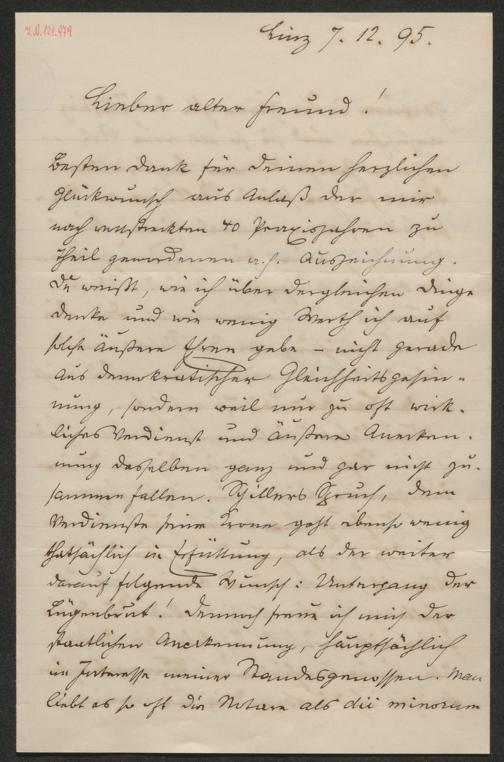 Z.N. 121.979
Linz 7. 12. 95.
Lieber alter Freund!
Besten Dank für Deinen herzlichen
Glückwunsch aus Anlaß der mir
nach vollstreckten 40 Praxisjahren zu
Theil gewordenen a.h. Auszeichnung.
Du weißt, wie ich über dergleichen Dinge
denke und wie wenig Werth ich auf
solche äußere Ehren gebe – nicht gerade
aus demokratischer Gleichheitsgesin-
nung, sondern weil nur zu oft wirk-
liches Verdienst und äußere Anerken-
nung desselben ganz und gar nicht zu-
sammenfallen. Schillers Spruch, dem
Verdienste seine Krone geht ebenso wenig
thatsächlich in Erfüllung, als der weiter
darauf folgende Wunsch: Untergang der
Lügenbrut! Dennoch freue ich mich der
staatlichen Anerkennung, hauptsächlich
im Interesse meiner Standesgenossen. Man
liebt es so oft die Notare als dii minorum